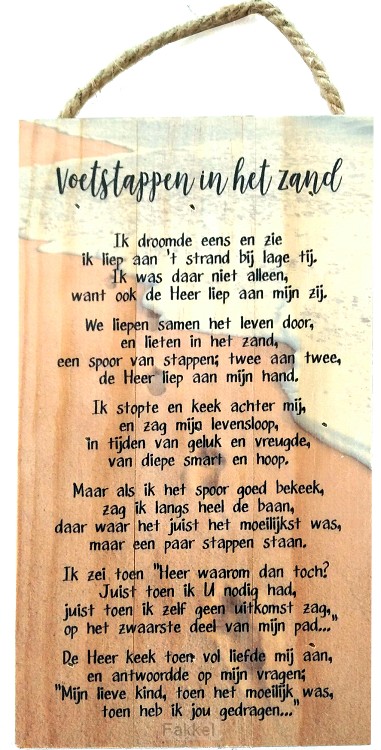 Voetstappen in het zand
Ik droomde eens en zie
ik liep aan 't strand bij lage tij.
Ik was daar niet alleen,
want ook de Heer liep aan mijn zij.
We liepen samen het leven door,
en lieten in het zand,
een spoor van stappen; twee aan twee,
de Heer liep aan mijn hand.
Ik stopte en keek achter mij,
en zag mijn levensloop,
in tijden van geluk en vreugde,
van diepe smart en hoop.
Maar als ik het spoor goed bekeek,
zag ik langs heel de baan,
daar waar het juist het moeilijkst was,
maar een paar stappen staan.
Ik zei toen "Heer waarom dan toch?
Juist toen ik U nodig had,
juist toen ik zelf geen uitkomst zag,
op het zwaarste deel van mijn pad..."
De Heer keek toen vol liefde mij aan,
en antwoordde op mijn vragen;
"Mijn lieve kind, toen het moeilijk was,
toen heb ik jou gedragen..."
Fakkel